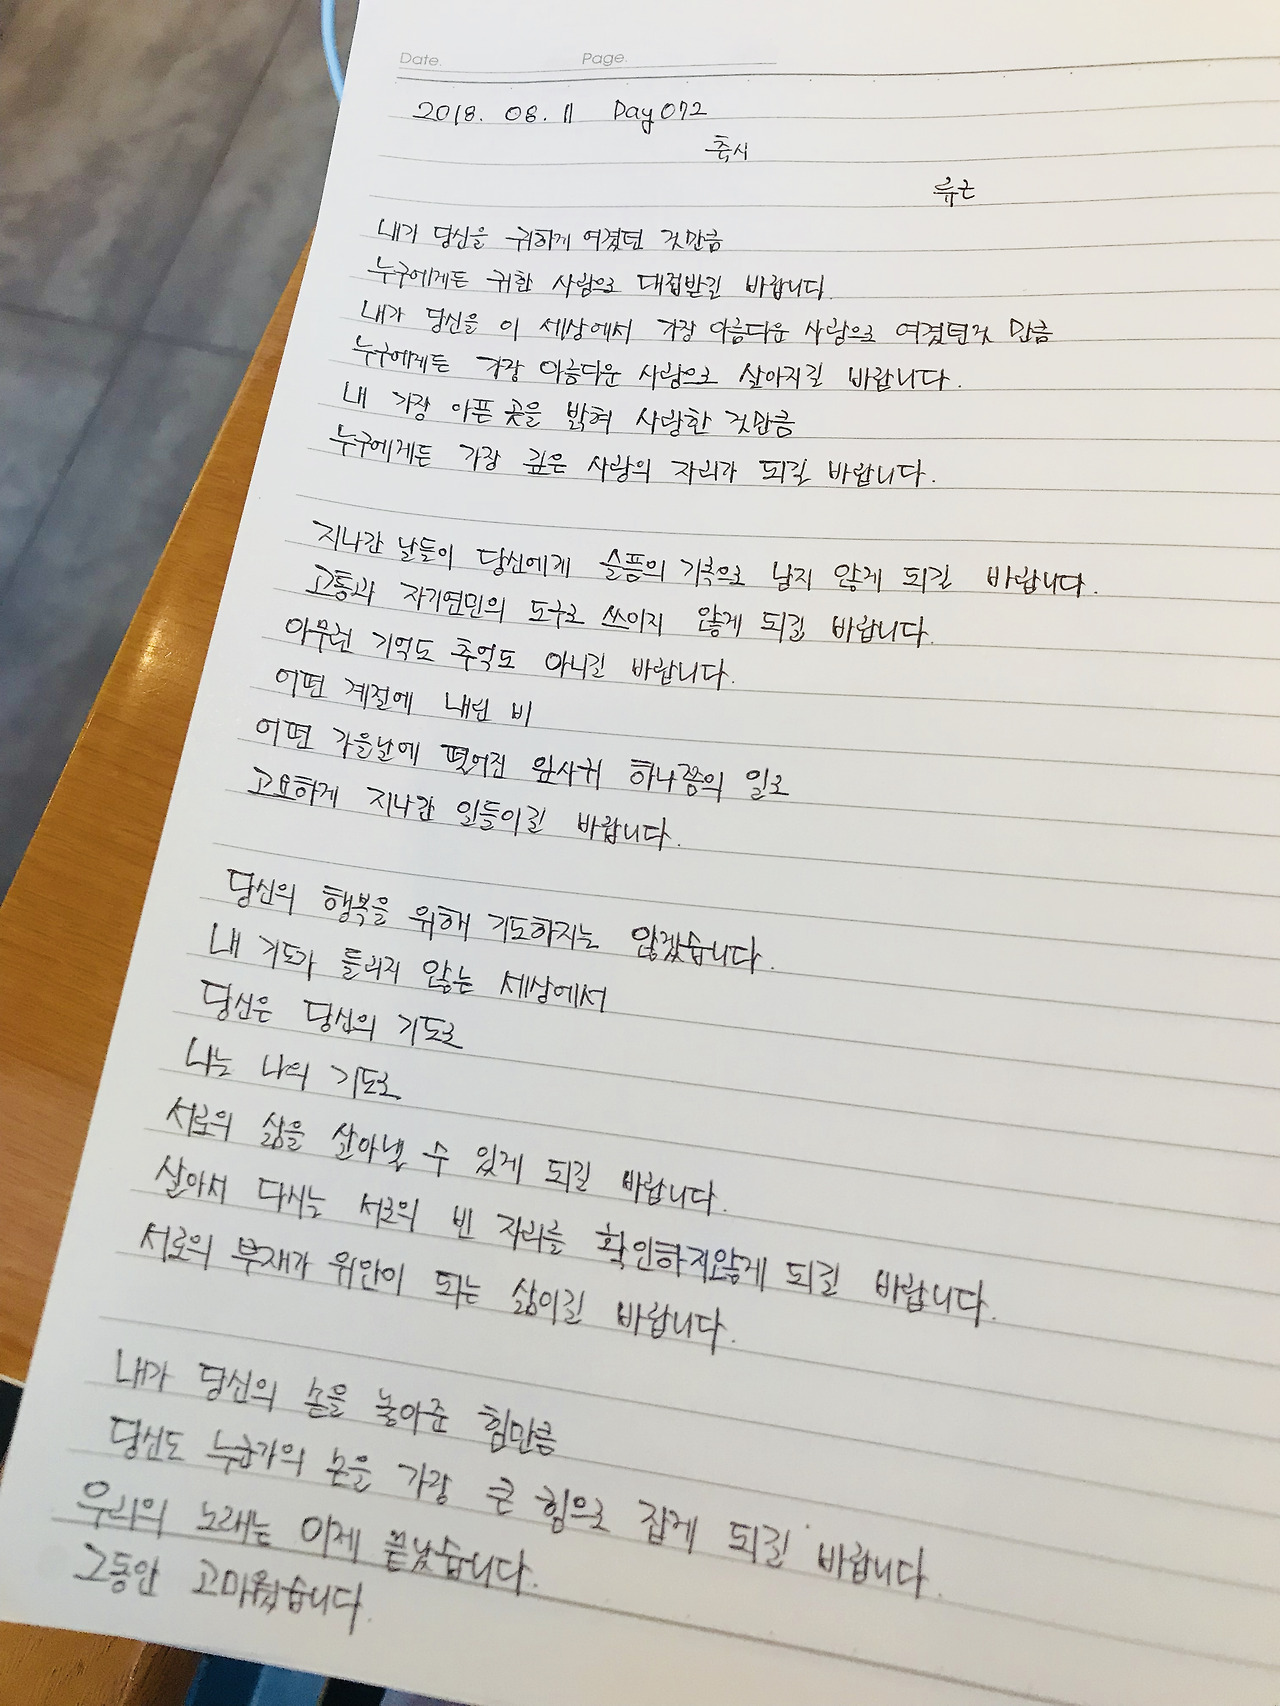 Date. Page.
2018. 08. 11 Day 072
축시
류근
내가 당신을 귀하게 여겼던 것만큼
누구에게든 귀한 사람으로 대접받길 바랍니다.
내가 당신을 이 세상에서 가장 아름다운 사람으로 여겼던것 만큼
누구에게든 가장 아름다운 사람으로 살아지길 바랍니다.
내 가장 아픈 곳을 밝혀 사랑한 것만큼
누구에게든 가장 깊은 사랑의 자리가 되길 바랍니다.
지나간 날들이 당신에게 슬픔의 기록으로 남지 않게 되길 바랍니다.
고통과 자기연민의 도구로 쓰이지 않게 되길 바랍니다.
아무런 기억도 추억도 아니길 바랍니다.
어떤 계절에 내린 비
어떤 가을날에 떨어진 잎사귀 하나쯤의 일로
고요하게 지나간 일들이길 바랍니다.
당신의 행복을 위해 기도하지는 않겠습니다.
내 기도가 들리지 않는 세상에서
당신은 당신의 기도로
나는 나의 기도로
서로의 삶을 살아낼 수 있게 되길 바랍니다.
살아서 다시는 서로의 빈 자리를 확인하지않게 되길 바랍니다.
서로의 부재가 위안이 되는 삶이길 바랍니다.
내가 당신의 손을 놓아준 힘만큼
당신도 누군가의 손을 가장 큰 힘으로 잡게 되길 바랍니다.
우리의 노래는 이제 끝났습니다.
그동안 고마웠습니다.